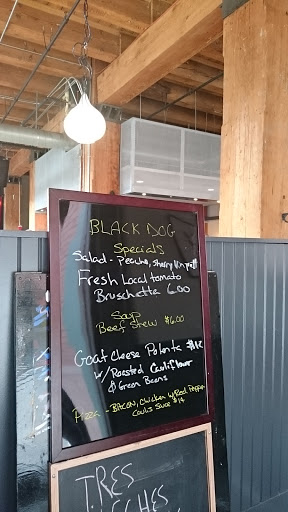 BLACK DOG
Specials
Salad - Peaches, Sherry
Fresh Local tomato
Bruschetta 6.00
Soup
Beef Stew $6.00
Goat Cheese Polenta
w/ Roasted Cauliflower
& Green Beans
Pizza - Bacon, Chicken w/ Red Pepper
Coulis Sauce $14
TRES
LECHES